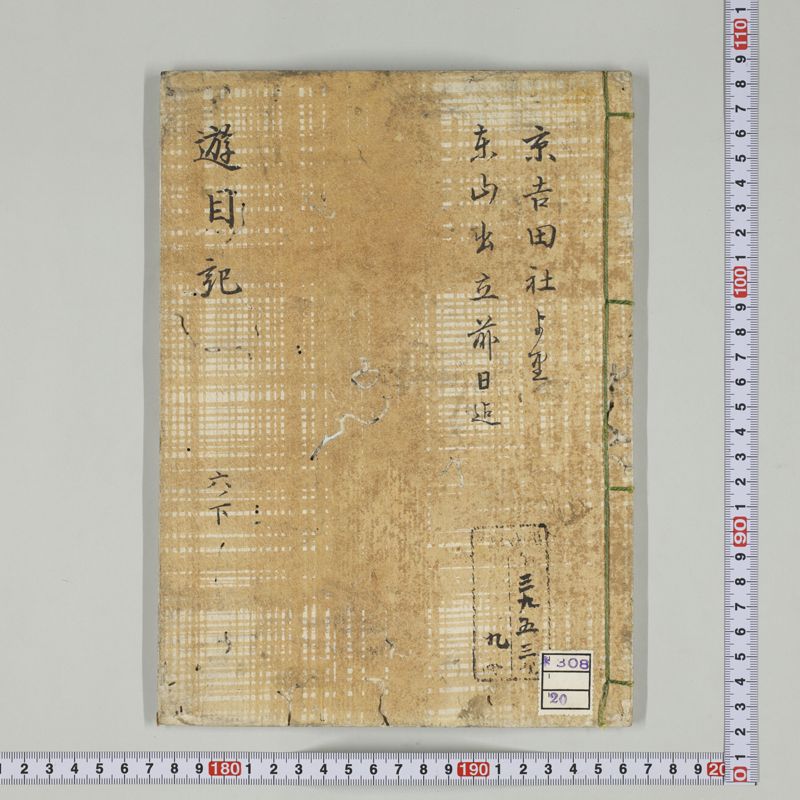 京吉田社より
東山出立前日迄
遊目記
六ノ下
三九五三
九
308
20